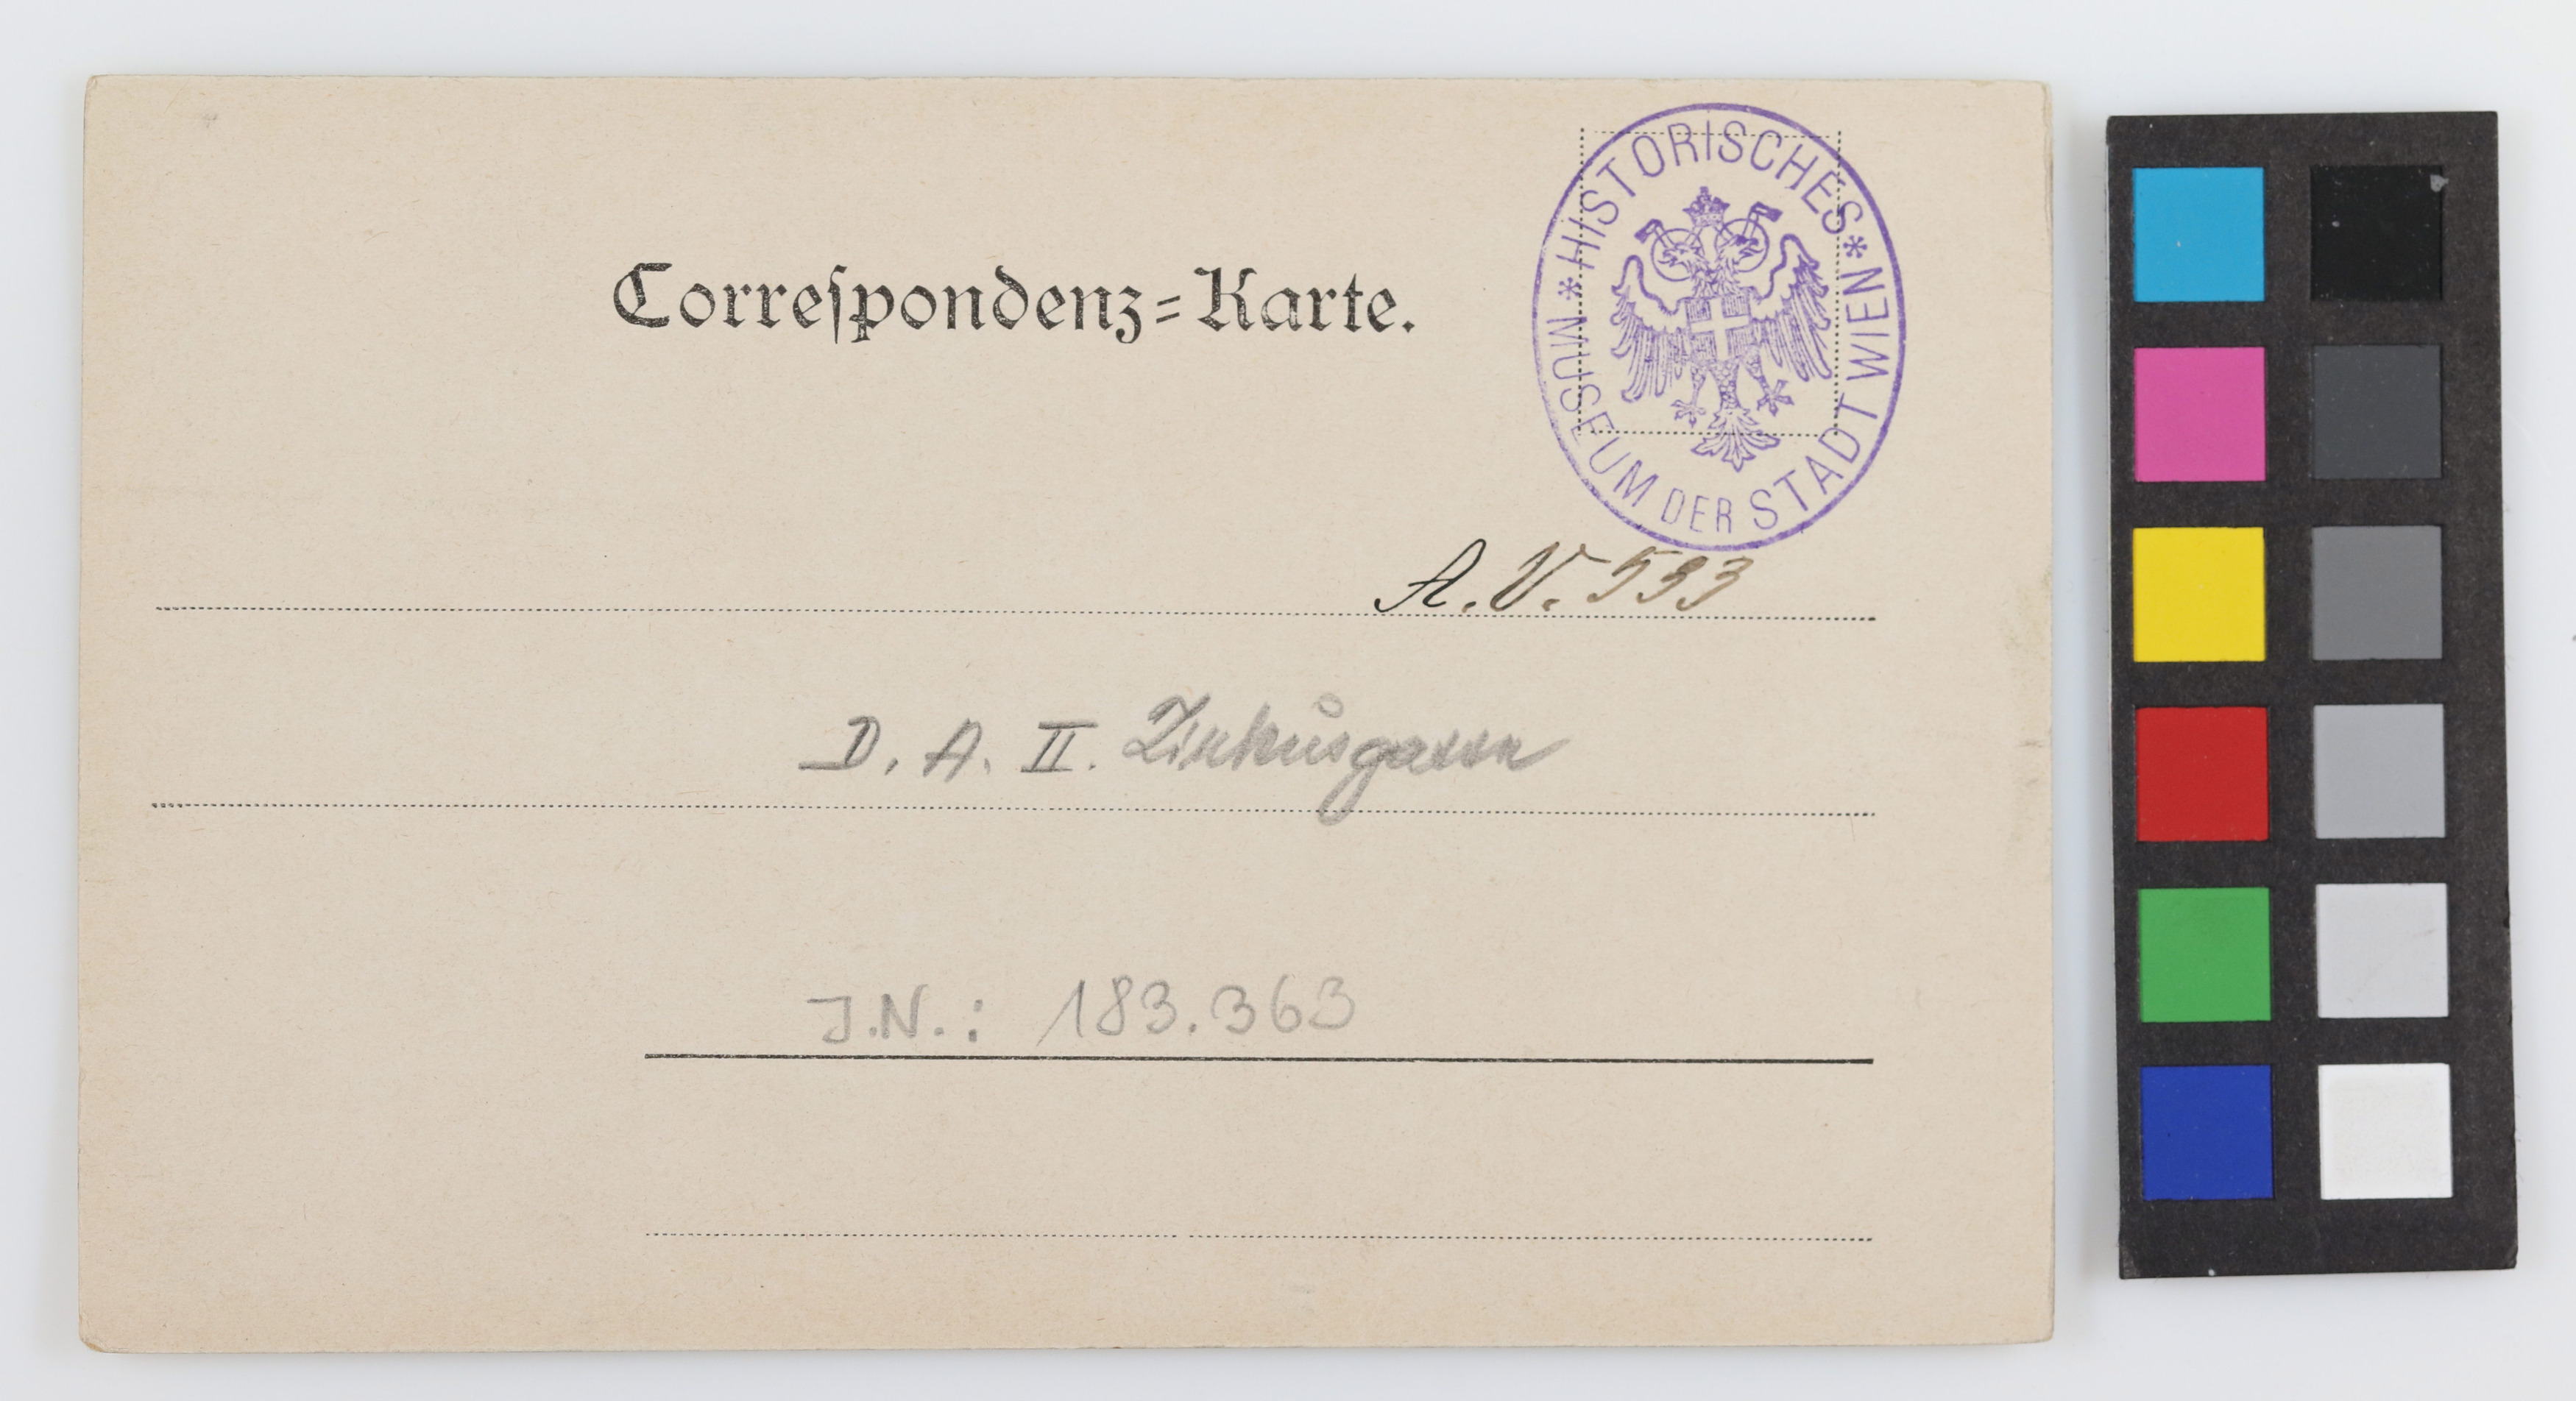 Correſpondenz=Karte.
* HISTORISCHES * MUSEUM DER STADT WIEN
A. V. 593
D. A. II. Zirkusgasse
J.N.: 183.363